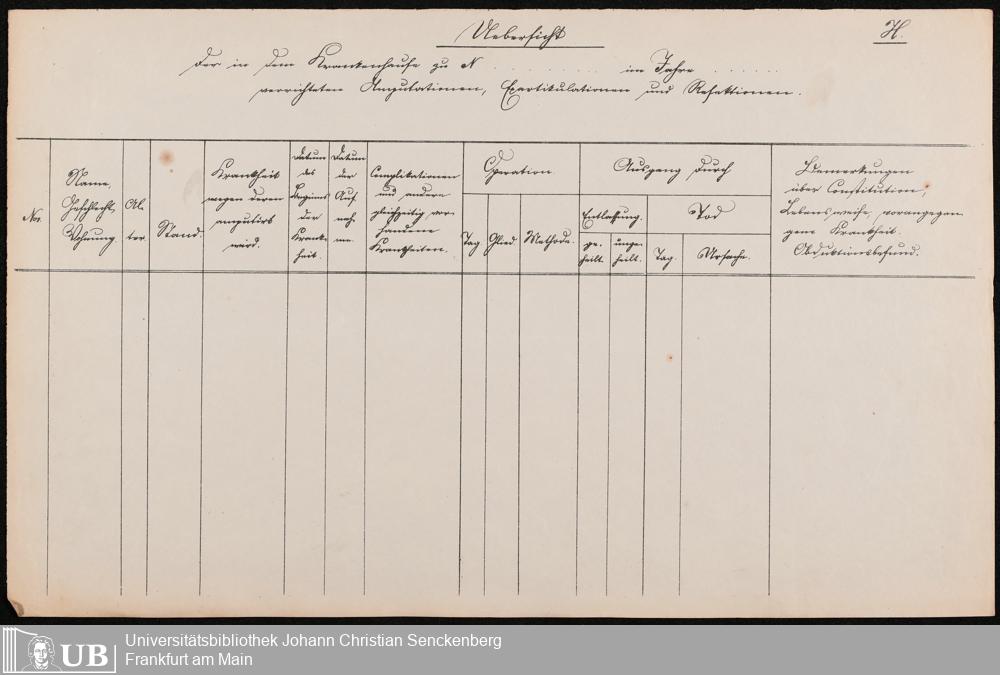 Uebersicht
H.
der in dem Krankenhause zu N . . . . . . . . . im Jahre . . . . . .
verrichteten Amputationen, Exartikulationen und Resektionen.
No.
Name,
Geschlecht,
Wohnung
Al-
ter.
Stand.
Krankheit
wegen deren
amputirt
wird.
Datum
des
Beginns
der
Krank-
heit.
Datum
der
Auf-
nah-
me.
Complikationen
und andere
gleichzeitig vor-
handene
Krankheiten.
Operation
Tag
Glied
Methode.
Ausgang durch
Entlassung.
ge-
heilt.
unge-
heilt.
Tod
Tag.
Ursache.
Bemerkungen
über Constitution,
Lebensweise, vorangegan-
gene Krankheit.
Obduktionsbefund.
UB
Universitätsbibliothek Johann Christian Senckenberg
Frankfurt am Main